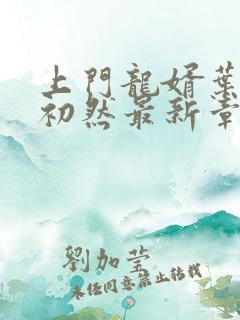 上門龍婿葉
初然最新章
劉加瑩
未经同意禁止转载